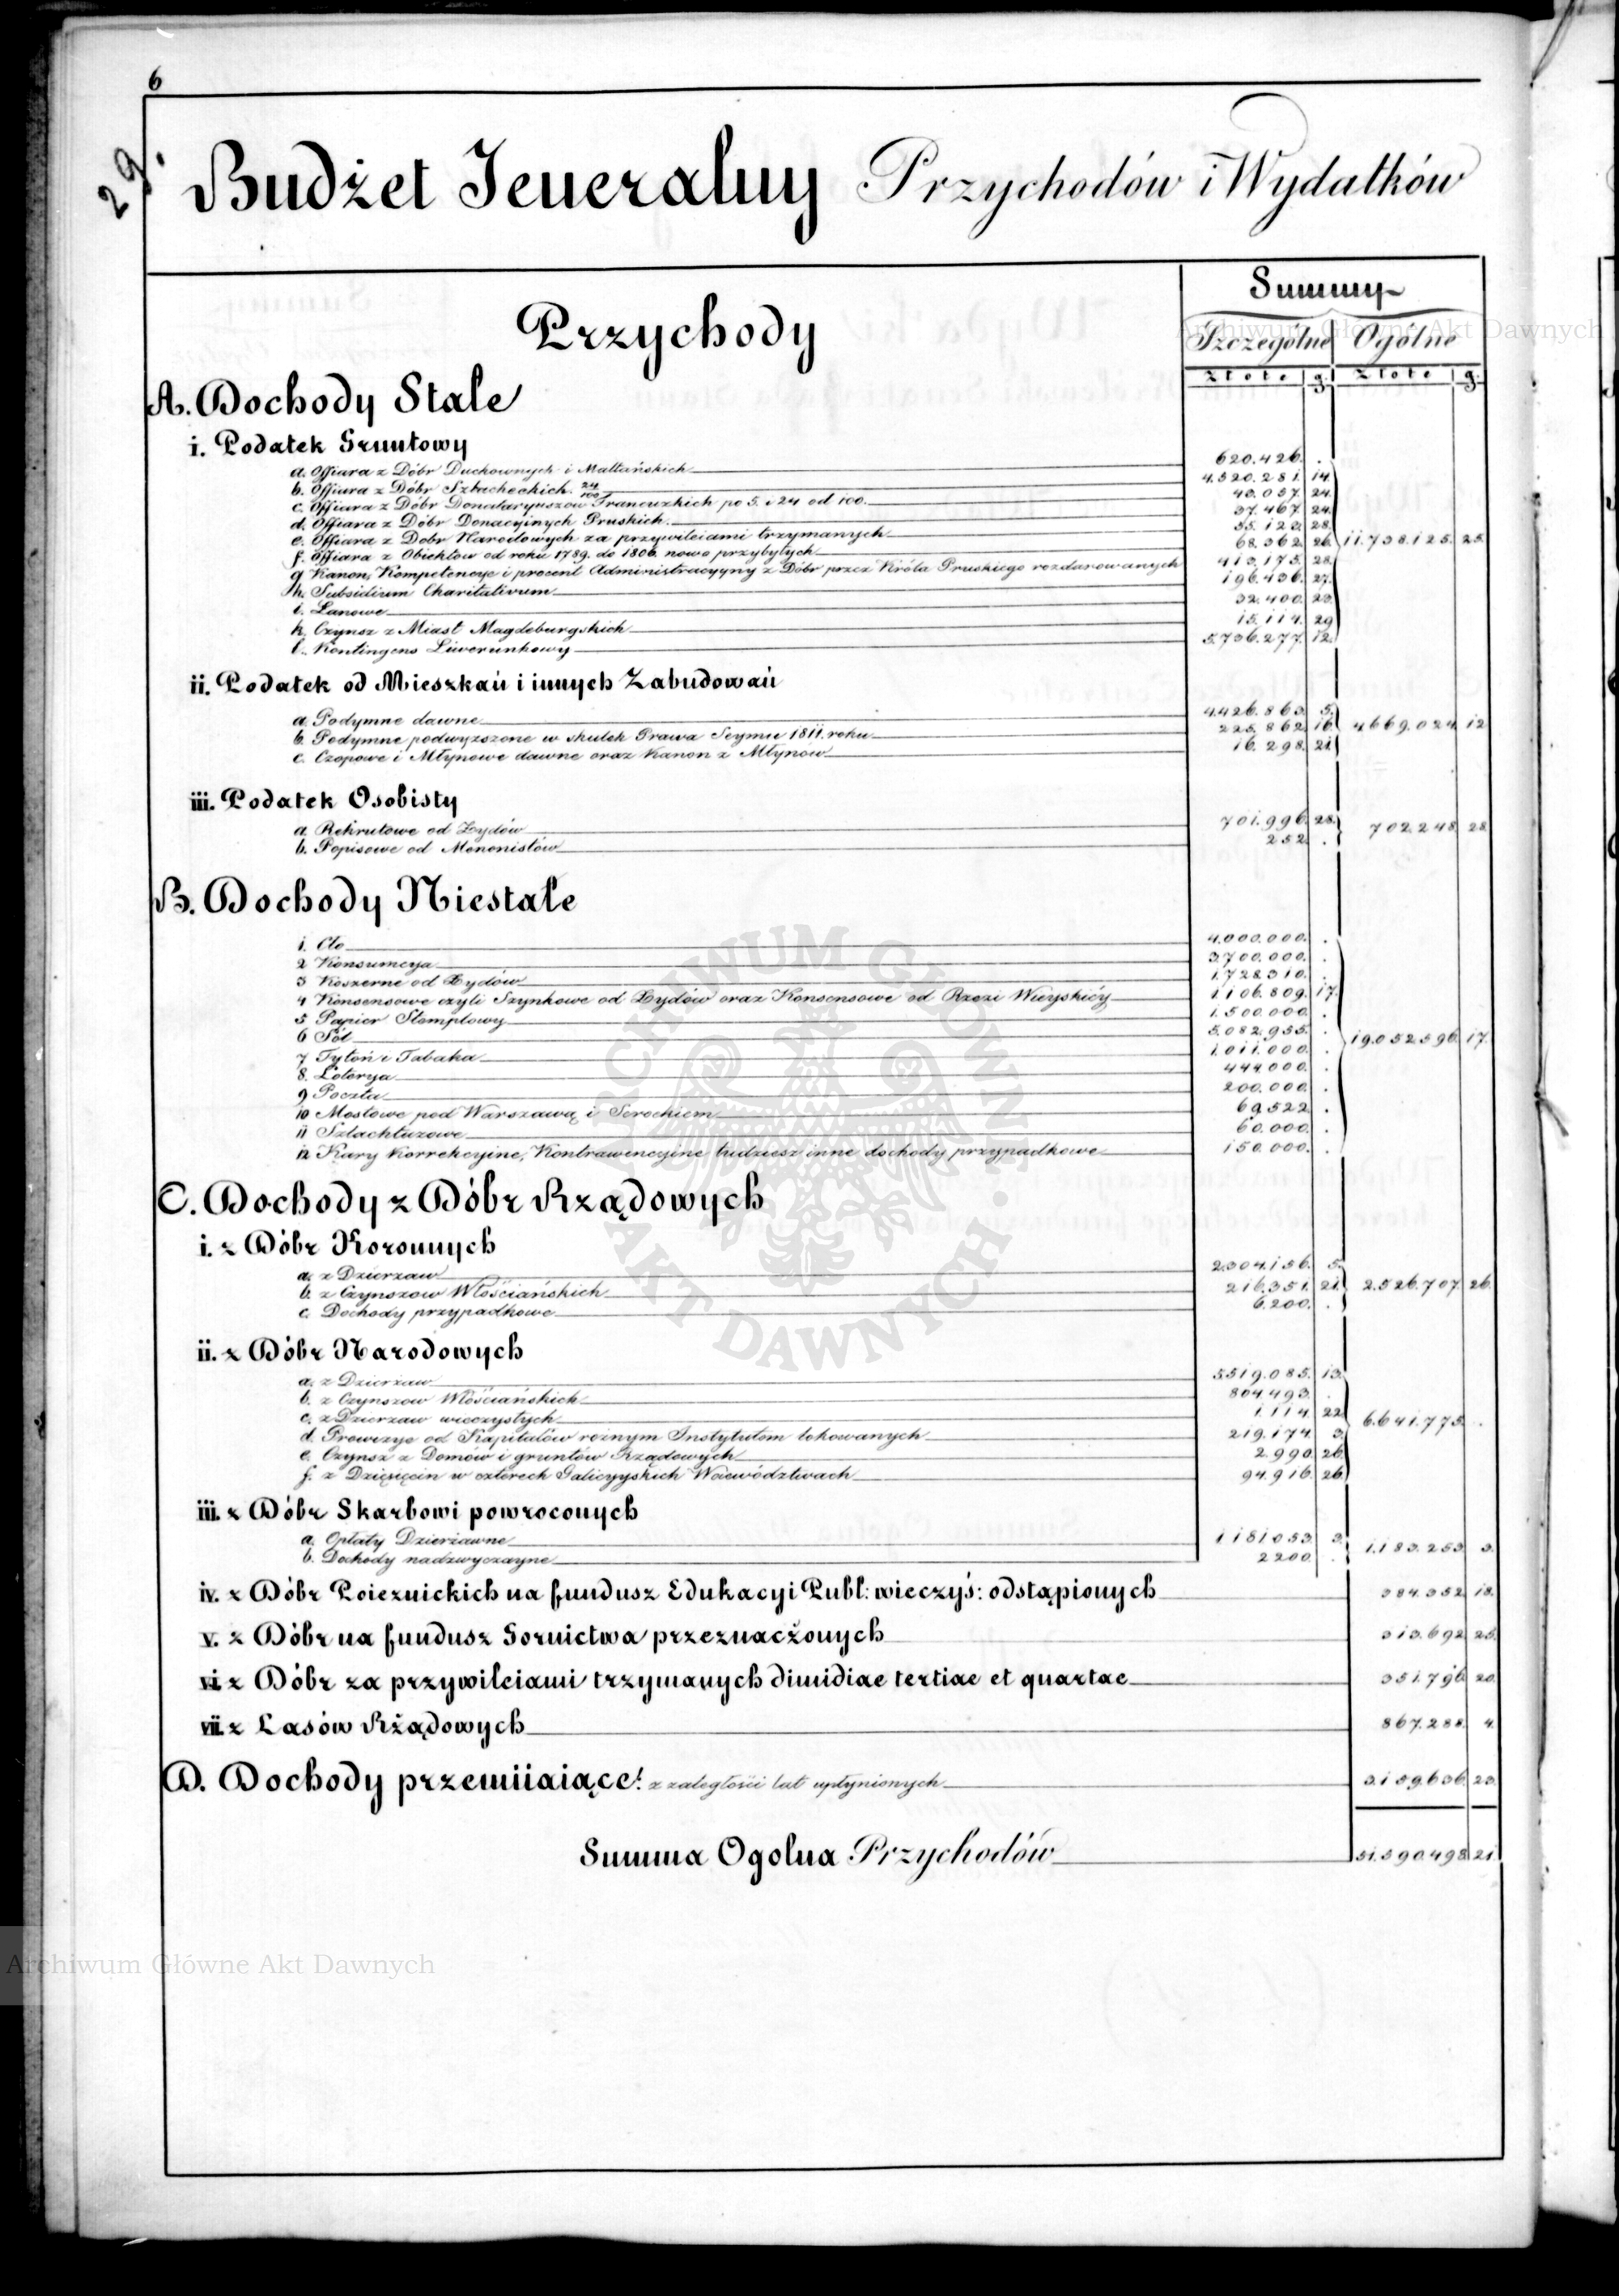 6
29.
Budżet Jeneralny Przychodów i Wydatków
Przychody
Summy
Szczególne Ogólne
złote g. złote g.
A. Dochody Stałe
i. Podatek Gruntowy
a. Offiara z Dóbr Duchownych i Maltańskich 620.426. .
b. Offiara z Dóbr Szlacheckich 24/100 4.520.281. 14.
c. Offiara z Dóbr Donataryuszow Francuzkich po 5. i 24 od 100. 43.057. 24.
d. Offiara z Dóbr Donacyinych Pruskich. 37.467. 24.
e. Offiara z Dobr Narodowych za przywileiami trzymanych 55.123. 28.
f. Offiara z Obiektow od roku 1789. do 1806. nowo przybyłych 68.362. 26. 11.738.125. 25.
g Kanon, Kompetencye i procent Administracyyny z Dóbr przez Króla Pruskiego rozdarowanych 413.175. 28.
h. Subsidium Charitativum 196.436. 27.
i. Łanowe 32.400. 23.
k. Czynsz z Miast Magdeburgskich 15.114. 29
l. Kontingens Liwerunkowy 5.736.277. 12.
ii. Podatek od Mieszkań i innych Zabudowań
a. Podymne dawne 4.426.863. 5.
b. Podymne podwyzszone w skutek Prawa Seymu 1811. roku 225.862. 16. 4.669.024. 12
c. Czopowe i Młynowe dawne oraz Kanon z Młynów 16.298. 21.
iii. Podatek Osobisty
a. Rekrutowe od Żydów 701.996. 28. 702.248. 28
b. Popisowe od Menonistów 252. .
B. Dochody Niestałe
1. Cło 4.000.000. .
2 Konsumcya 3.700.000. .
3 Koszerne od Żydów 1.728.310. .
4 Konsensowe czyli Szynkowe od Żydów oraz Konsensowe od Rzezi Wieyskiéy 1.106.809. 17.
5 Papier Stemplowy 1.500.000. .
6 Sól 5.082.955. . 19.052.596. 17.
7 Tytoń i Tabaka 1.011.000. .
8. Loterya 444.000. .
9 Poczta 200.000. .
10 Mostowe pod Warszawą i Serockiem 69.522. .
11 Szlachtuzowe 60.000. .
12 Kary Korrekcyine, Kontrawencyine tudziesz inne dochody przypadkowe 150.000. .
C. Dochody z Dóbr Rządowych
i. z Dóbr Koronnych
a. z Dzierzaw 2.304.156. 5.
b. z Czynszow Włościańskich 216.351. 21. 2.526.707. 26.
c. Dochody przypadkowe 6.200. .
ii. z Dóbr Narodowych
a. z Dzierżaw 5.519.085. 13.
b. z Czynszow Włościańskich 804.493. .
c. z Dzierzaw wieczystych 1.114. 22 6.641.775. .
d. Prowizye od Kapitałów roznym Instytutom lokowanych 219.174. 3.
e. Czynsz z Domów i gruntów Rządowych 2.990. 26.
f. z Dzięsięcin w czterech Galicyyskich Woiewództwach 94.916. 26.
iii. z Dóbr Skarbowi powroconych
a. Opłaty Dzierżawne 1.181.053. 3. 1.183.253. 3.
b. Dochody nadzwyczayne 2200. .
iv. z Dóbr Poiezuickich na fundusz Edukacyi Publ: wieczyś: odstąpionych 384.352. 13.
v. z Dóbr na fundusz Gornictwa przeznaczonych 313.692. 25.
vi z Dóbr za przywileiami trzymanych dimidiae tertiae et quartae 351.796. 20.
vii. z Lasów Rządowych 867.288. 4.
D. Dochody przemiiaiące! z zaległości lat upłynionych 3.159.636. 23.
Summa Ogolna Przychodów 51.590.498. 21.
Archiwum Główne Akt Dawnych
ARCHIWUM GŁÓWNE AKT DAWNYCH
Archiwum Główne Akt Dawnych